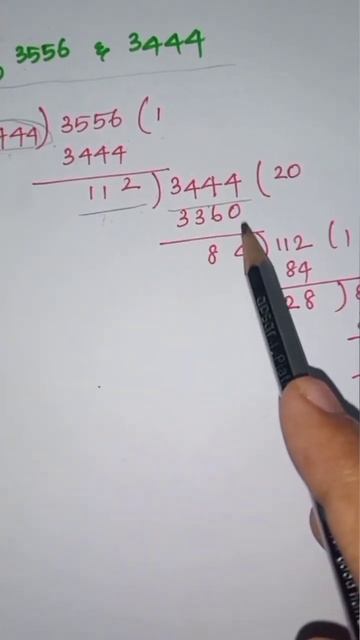 3556 & 3444
444) 3556 (1
3444
112 ) 3444 ( 20
3360
84 ) 112 ( 1
84
28 ) 8